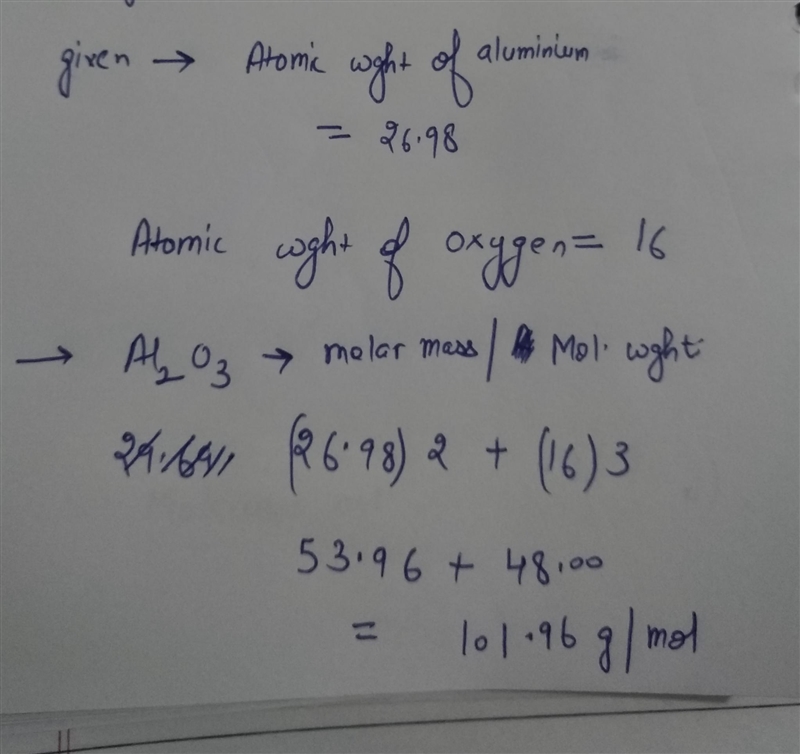 given → Atomic wght of aluminium
= 26.98
Atomic wght of oxygen = 16
→ Al2O3 → molar mass / Mol. wght.
(26.98) 2 + (16) 3
53.96 + 48.00
= 101.96 g/mol